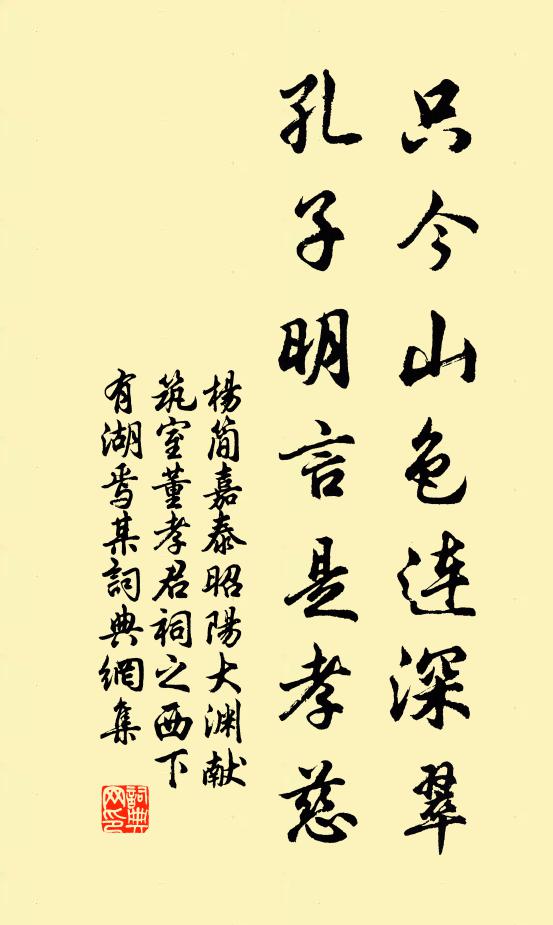 只今山色连深翠
孔子明言是孝慈
楊简嘉泰昭陽大渊献
筑室董孝君祠之西下
有湖焉其詞典網集
詞典网印